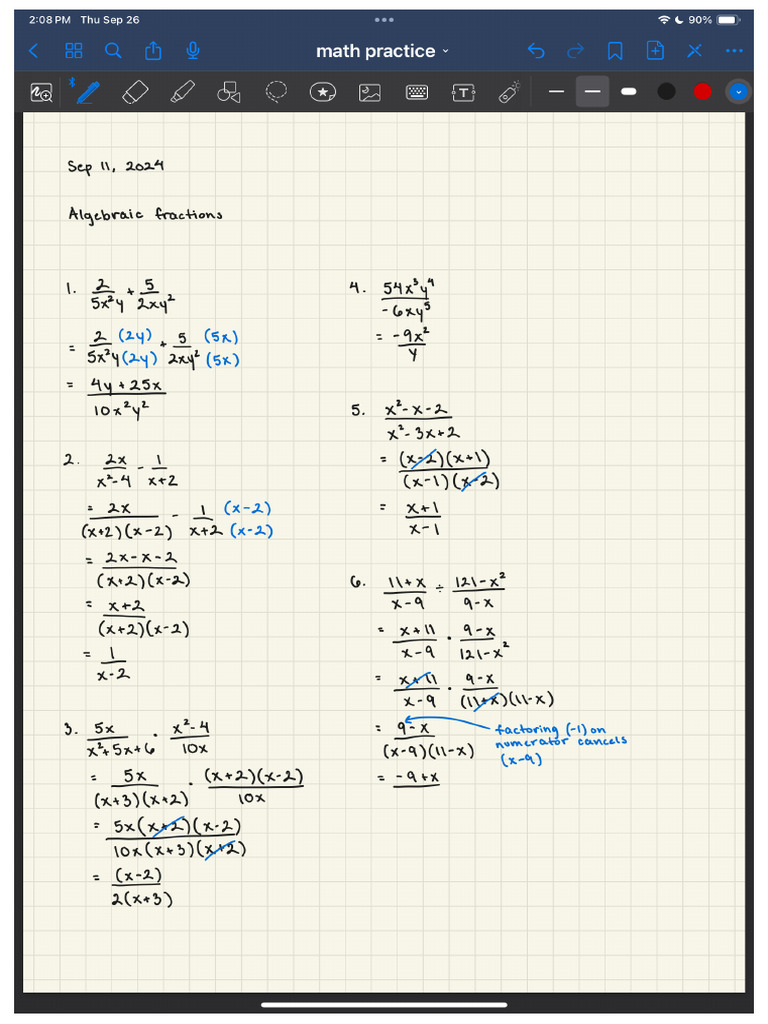 2:08 PM Thu Sep 26
90%
math practice
Sep 11, 2024
Algebraic fractions
1. 2/(5x²y) + 5/(2xy²)
= 2(2y)/(5x²y(2y)) + 5(5x)/(2xy²(5x))
= (4y + 25x)/(10x²y²)
2. 2x/(x²-4) - 1/(x+2)
= 2x/((x+2)(x-2)) - 1(x-2)/(x+2(x-2))
= (2x-x-2)/((x+2)(x-2))
= (x+2)/((x+2)(x-2))
= 1/(x-2)
3. 5x/(x²+5x+6) · (x²-4)/(10x)
= 5x/((x+3)(x+2)) · ((x+2)(x-2))/(10x)
= (5x(x+2)(x-2))/(10x(x+3)(x+2))
= (x-2)/(2(x+3))
4. 54x³y⁴/(-6xy⁵)
= -9x²/y
5. (x²-x-2)/(x²-3x+2)
= ((x-2)(x+1))/((x-1)(x-2))
= (x+1)/(x-1)
6. (11+x)/(x-9) ÷ (121-x²)/(9-x)
= (x+11)/(x-9) · (9-x)/(121-x²)
= (x+11)/(x-9) · (9-x)/((11+x)(11-x))
= (9-x)/((x-9)(11-x))
factoring (-1) on
numerator cancels
(x-9)
= -9+x